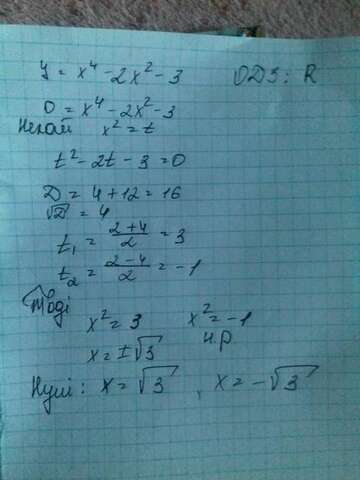 y = x⁴ - 2x² - 3 ОДЗ: R
0 = x⁴ - 2x² - 3
Нехай x² = t
t² - 2t - 3 = 0
D = 4 + 12 = 16
√D = 4
t₁ = (2+4)/2 = 3
t₂ = (2-4)/2 = -1
Тоді
x² = 3 x² = -1
x = ±√3 н.р.
Нулі: x = √3, x = -√3